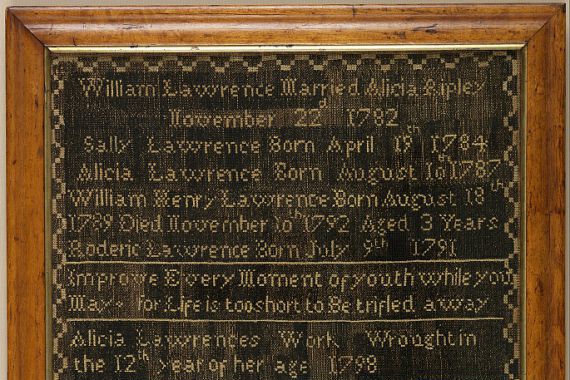 William Lawrence Married Alicia Ripley
November 22d 1782
Sally Lawrence Born April 19th 1784
Alicia Lawrence Born August 16th 1787
William Henry Lawrence Born August 18th
1789 Died November 10th 1792 Aged 3 Years
Roderic Lawrence Born July 9th 1791
Improve Every Moment of youth while you
May for Life is too short to Be trifled away
Alicia Lawrences Work Wrought in
the 12th year of her age 1798